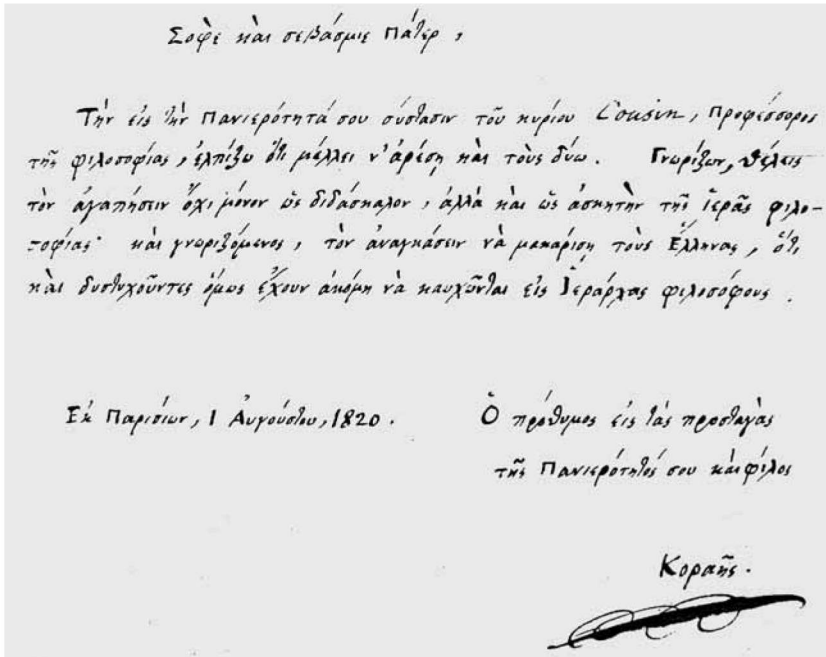 Σοφὲ καὶ σεβάσμιε Πάτερ,
Τὴν εἰς τὴν Πανιερότητά σου σύστασιν τοῦ κυρίου Cousin, Προφέσσορος
τῆς φιλοσοφίας, ἐλπίζω ὅτι μέλλει ν' ἀρέσῃ καὶ τοὺς δύω. Γνωρίζων, θέλεις
τὸν ἀγαπήσειν ὄχι μόνον ὡς διδάσκαλον, ἀλλὰ καὶ ὡς ἀσκητὴν τῆς ἱερᾶς φιλο-
σοφίας· καὶ γνωριζόμενος, τὸν ἀναγκάσειν νὰ μακαρίσῃ τοὺς Ἕλληνας, ὅτι
καὶ δυστυχοῦντες ὅμως ἔχουν ἀκόμη νὰ καυχῶνται εἰς Ἱεράρχας φιλοσόφους.
Ἐκ Παρισίων, 1 Αὐγούστου, 1820.
Ὁ πρόθυμος εἰς τὰς προσταγὰς
τῆς Πανιερότητός σου καὶ φίλος
Κοραῆς.